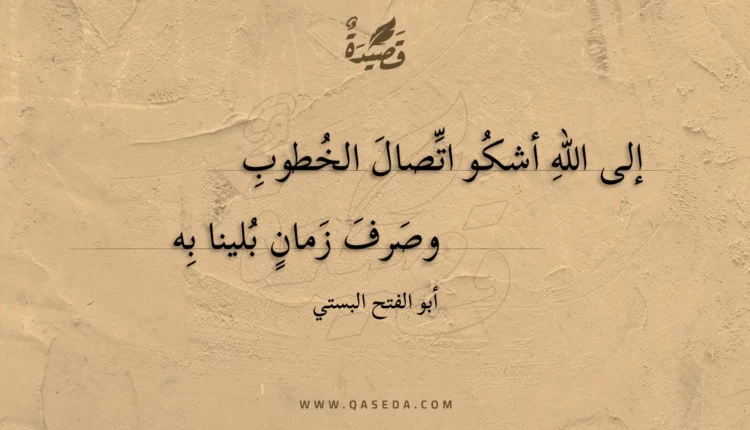 قَصِيدَةٌ
إلى اللهِ أشكُو اتِّصالَ الخُطوبِ
وصَرفَ زَمانٍ بُلينا بِه
أبو الفتح البستي
WWW.QASEDA.COM